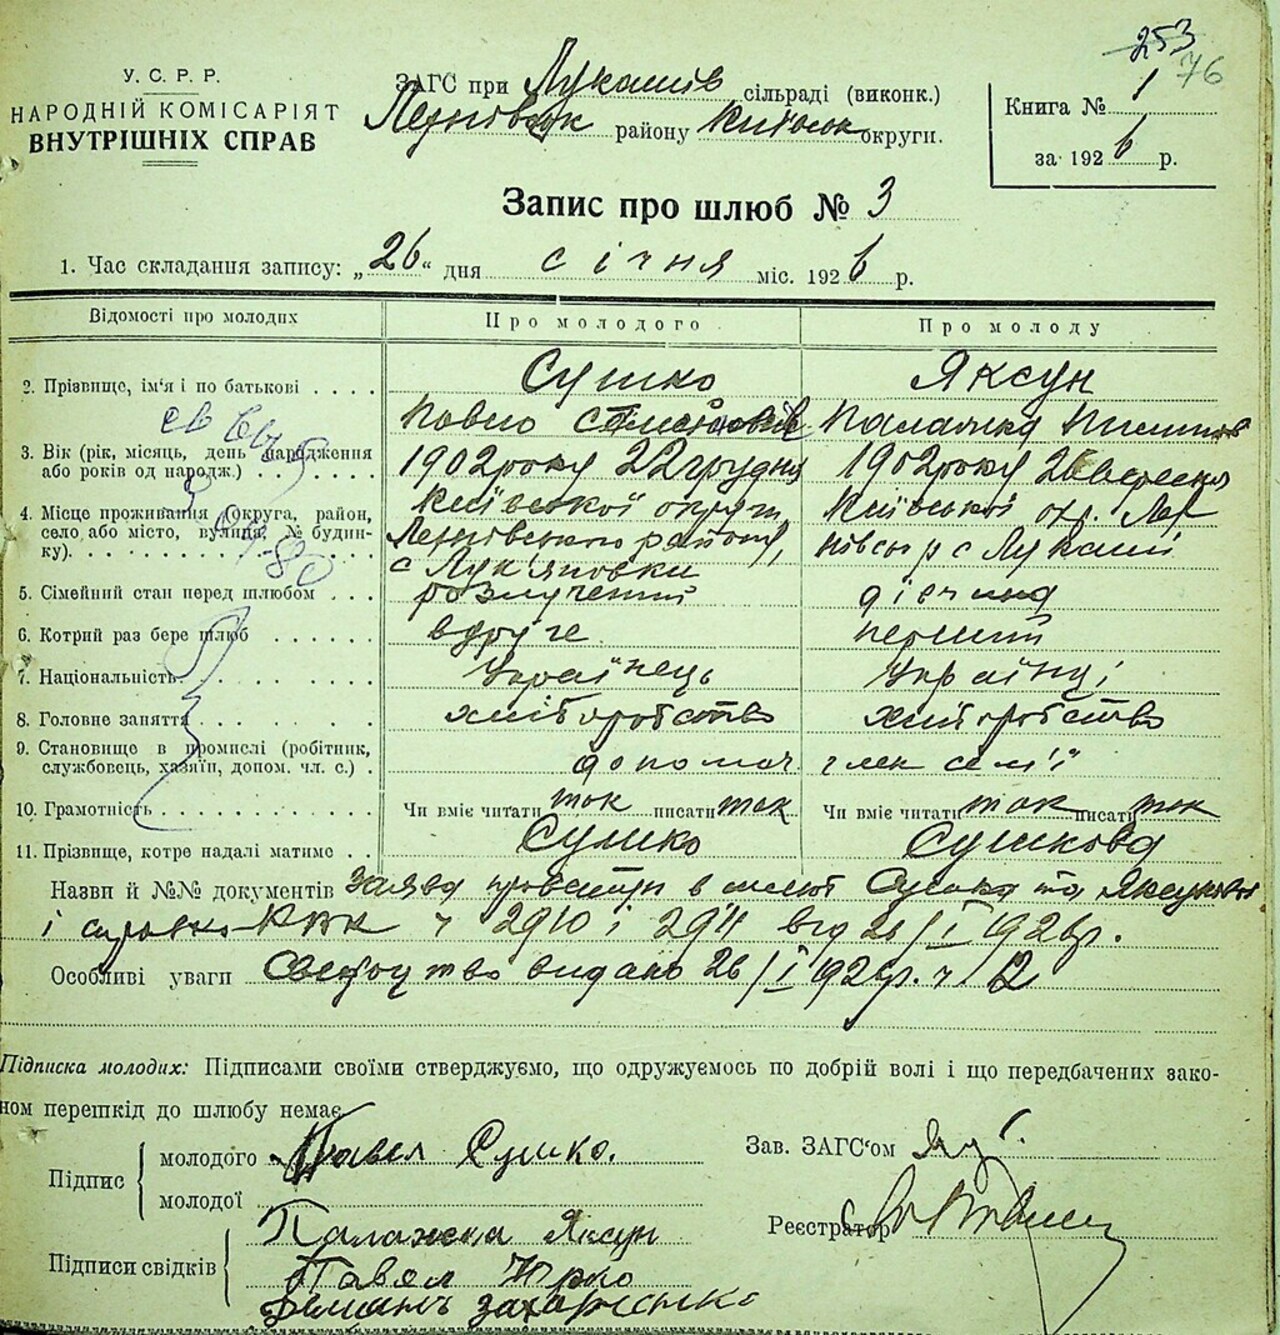 253
76
У. С. Р. Р.
НАРОДНІЙ КОМІСАРІЯТ
ВНУТРІШНІХ СПРАВ
ЗАГС при Лукашів сільраді (виконк.)
району Київськ округи.
Книга № 1
за 1926 р.
Запис про шлюб № 3
1. Час складання запису: „26“ дня січня міс. 1926 р.
Відомості про молодих
Про молодого
Про молоду
2. Прізвище, ім'я і по батькові
Сушко
Павло
Яксун
Палажка
3. Вік (рік, місяць, день народження
або років од народж.)
1902 року 22 грудня
1902 року 26 вересня
4. Місце проживання (округа, район,
село або місто, вулиця, № будин-
ку).
Київської округи,
району,
с Лук'яновки
Київської окр.
с Лукаші
5. Сімейний стан перед шлюбом
розлучений
дівчина
6. Котрий раз бере шлюб
вдруге
перший
7. Національність
Українець
Українці
8. Головне заняття
хліборобство
хліборобство
9. Становище в промислі (робітник,
службовець, хазяїн, допом. чл. с.)
допомож
член сем'ї
10. Грамотність
Чи вміє читати так писати так
Чи вміє читати так писати так
11. Прізвище, котре надалі матиме
Сушко
Сушкова
Назви й №№ документів заява в Сушка та Яксунової
і ч 2910 і 2911 від 26/I 1926р.
Особливі уваги видано 26/I 1926р. ч. 12
Підписка молодих: Підписами своїми стверджуємо, що одружуємось по добрій волі і що передбачених зако-
ном перешкід до шлюбу немає
Підпис
молодого Павел Сушко.
молодої
Палажка Яксун
Підписи свідків
Павел
Зав. ЗАГС'ом
Реєстратор